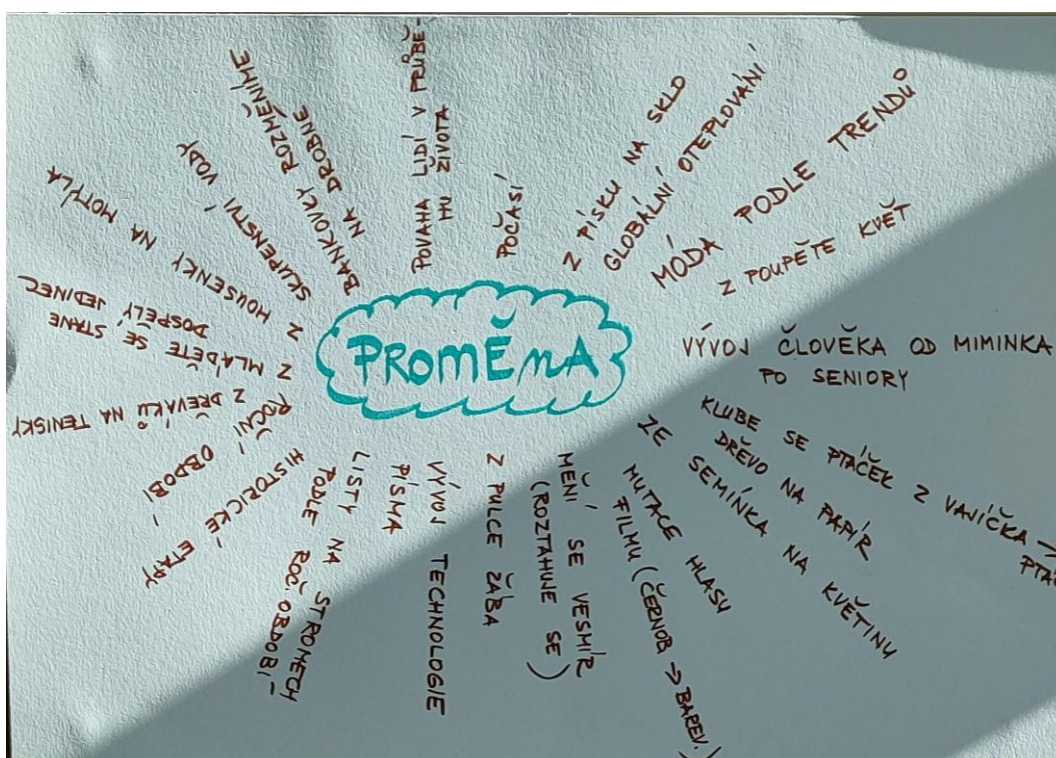 PROMĚNA
POČASÍ
Z PÍSKU NA SKLO
GLOBÁLNÍ OTEPLOVÁNÍ
MÓDA PODLE TRENDŮ
Z POUPĚTE KVĚT
VÝVOJ ČLOVĚKA OD MIMINKA
PO SENIORY
KLUBE SE PTÁČEK Z VAJÍČKA →
DŘEVO NA PAPÍR
ZE SEMÍNKA NA KVĚTINU
MUTACE HLASU
FILMU (ČERNOB → BAREV.)
MĚNÍ SE VESMÍR
(ROZTAHUJE SE)
Z PULCE ŽÁBA
VÝVOJ TECHNOLOGIE
PÍSMA
LISTY NA STROMECH
PODLE ROČ. OBDOBÍ
HISTORICKÉ ETAPY
ROČNÍ OBDOBÍ
Z DŘEVÁKŮ NA TENISKY
Z MLÁDĚTE SE STANE
DOSPĚLÝ JEDINEC
Z HOUSENKY NA MOTÝLA
SKUPENSTVÍ VODY
BANKOVKY ROZMĚNÍME
NA DROBNÉ
POVAHA LIDÍ V PRŮBĚ-
HU ŽIVOTA